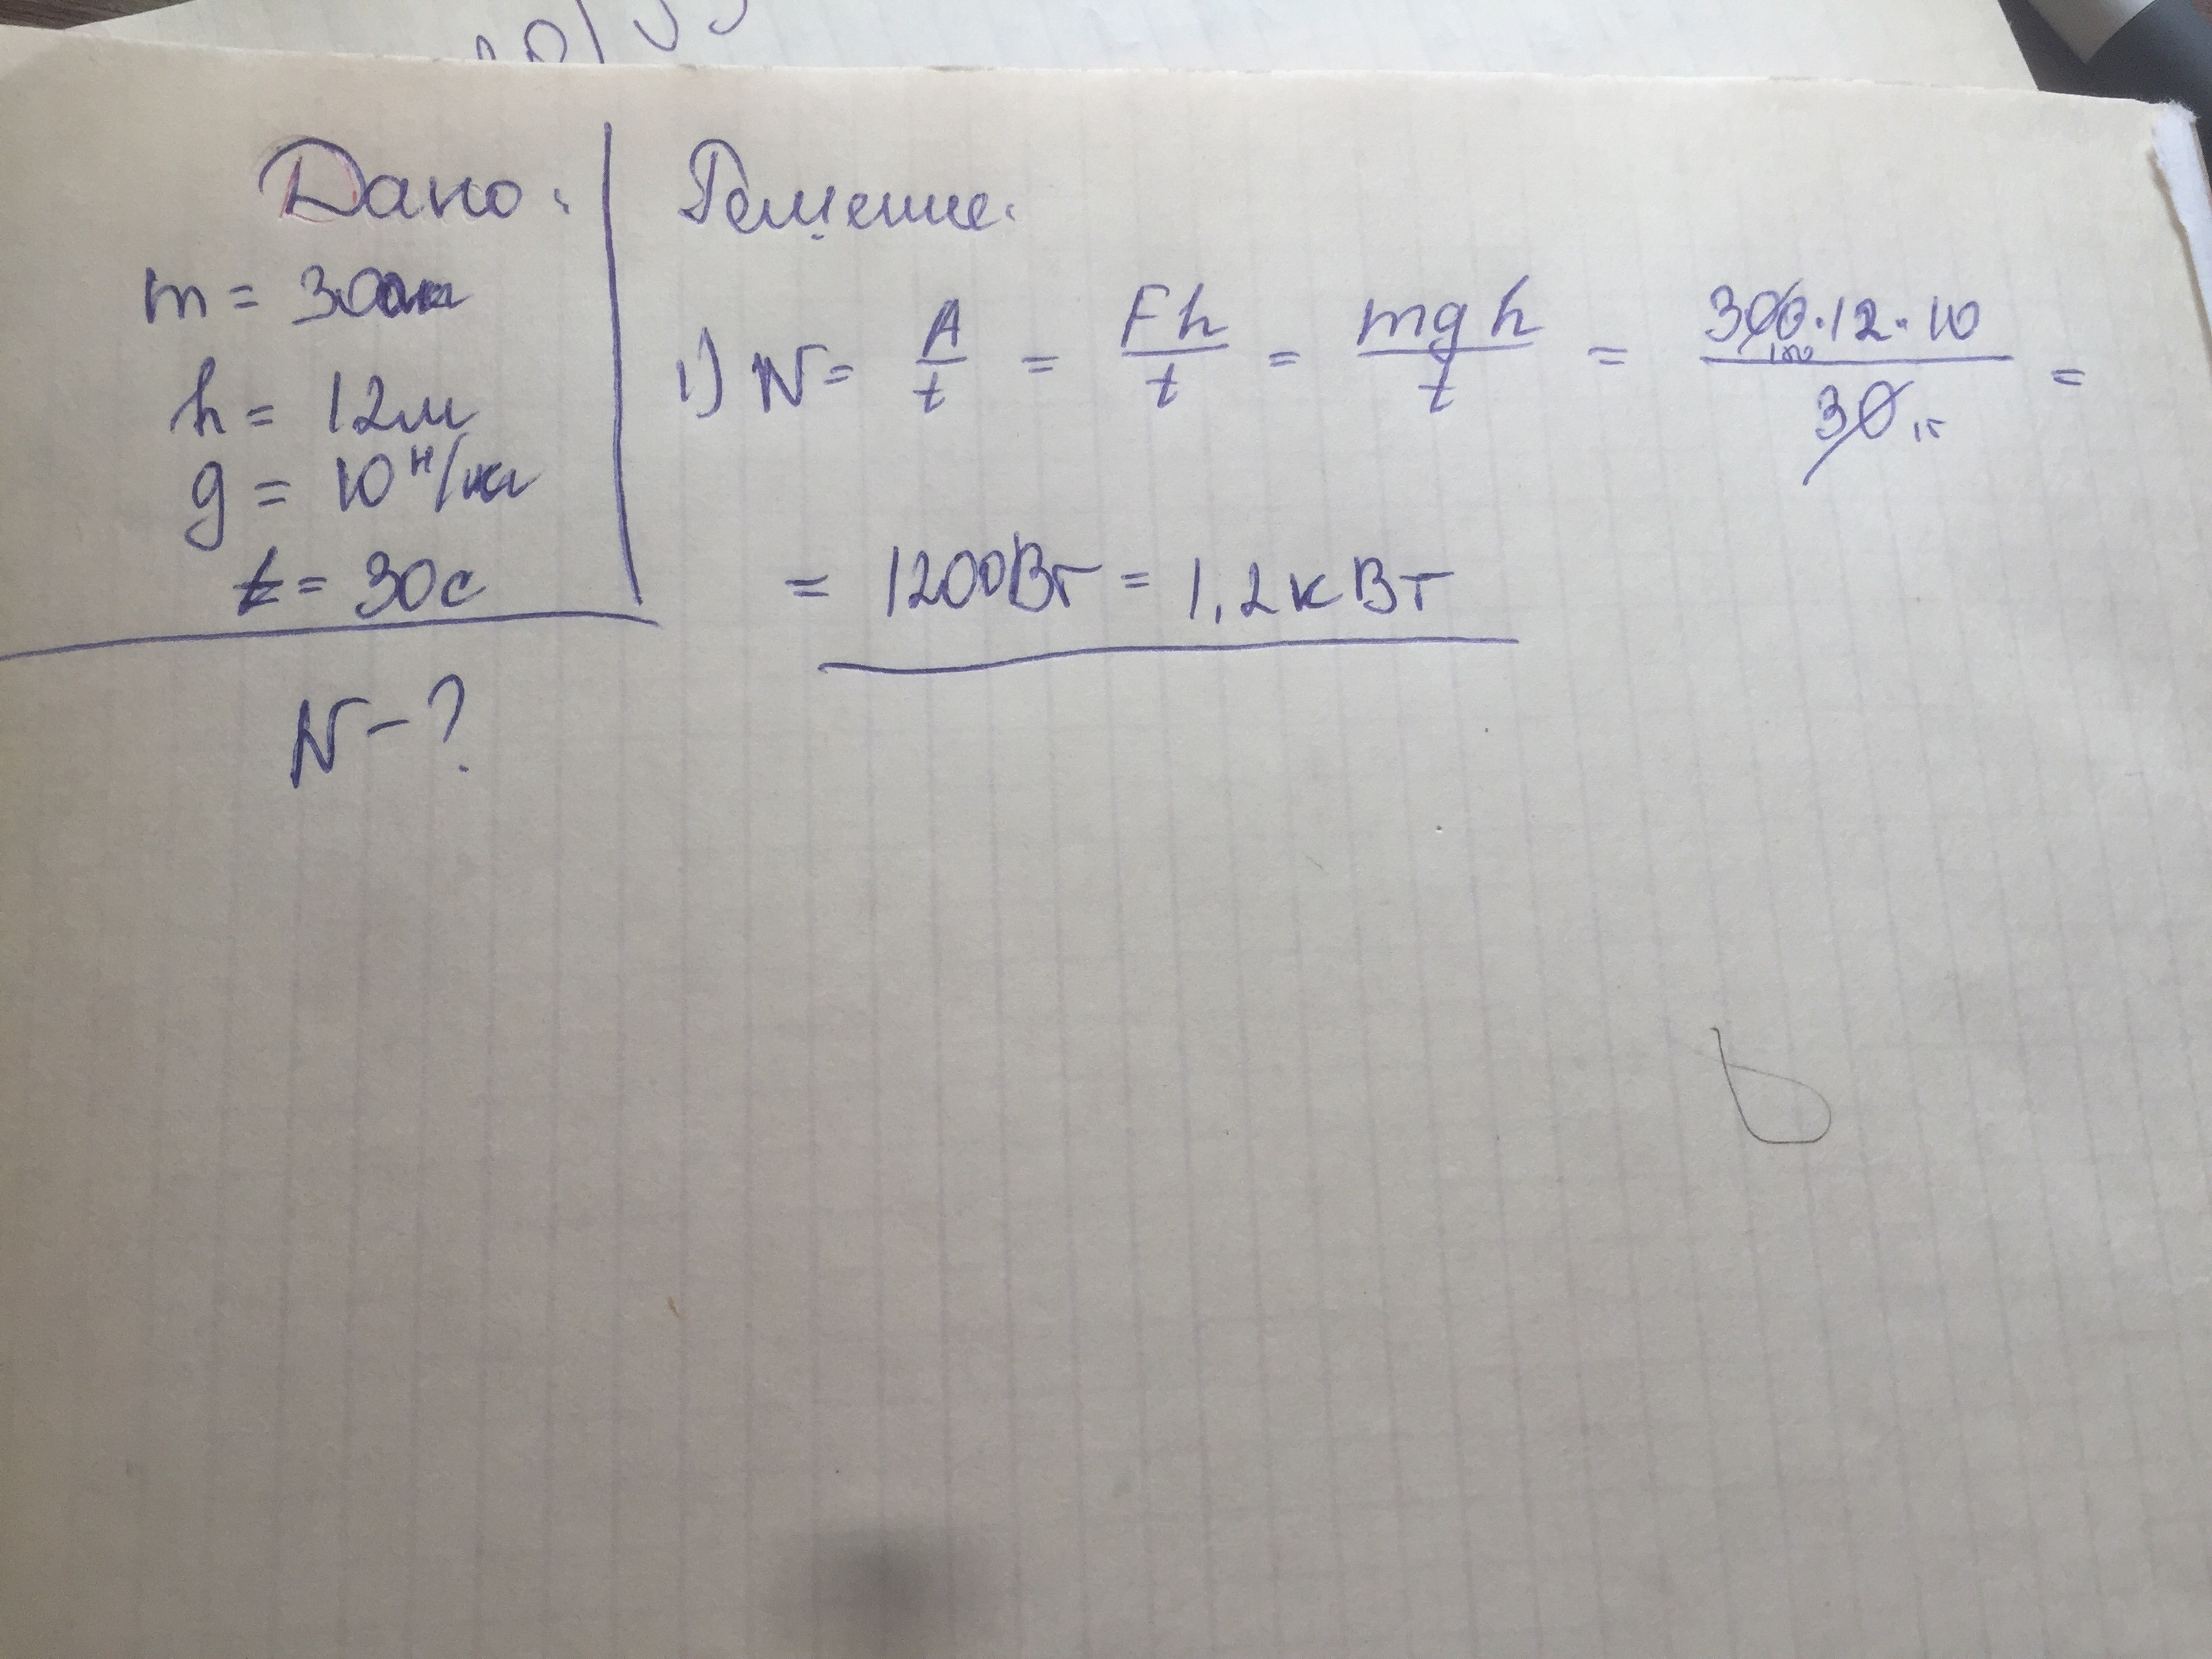 Дано:
m = 300кг
h = 12м
g = 10 Н/кг
t = 30с
N - ?
Решение.
1) N = A/t = Fh/t = mgh/t = 300·12·10/30 =
= 1200Вт = 1,2кВт